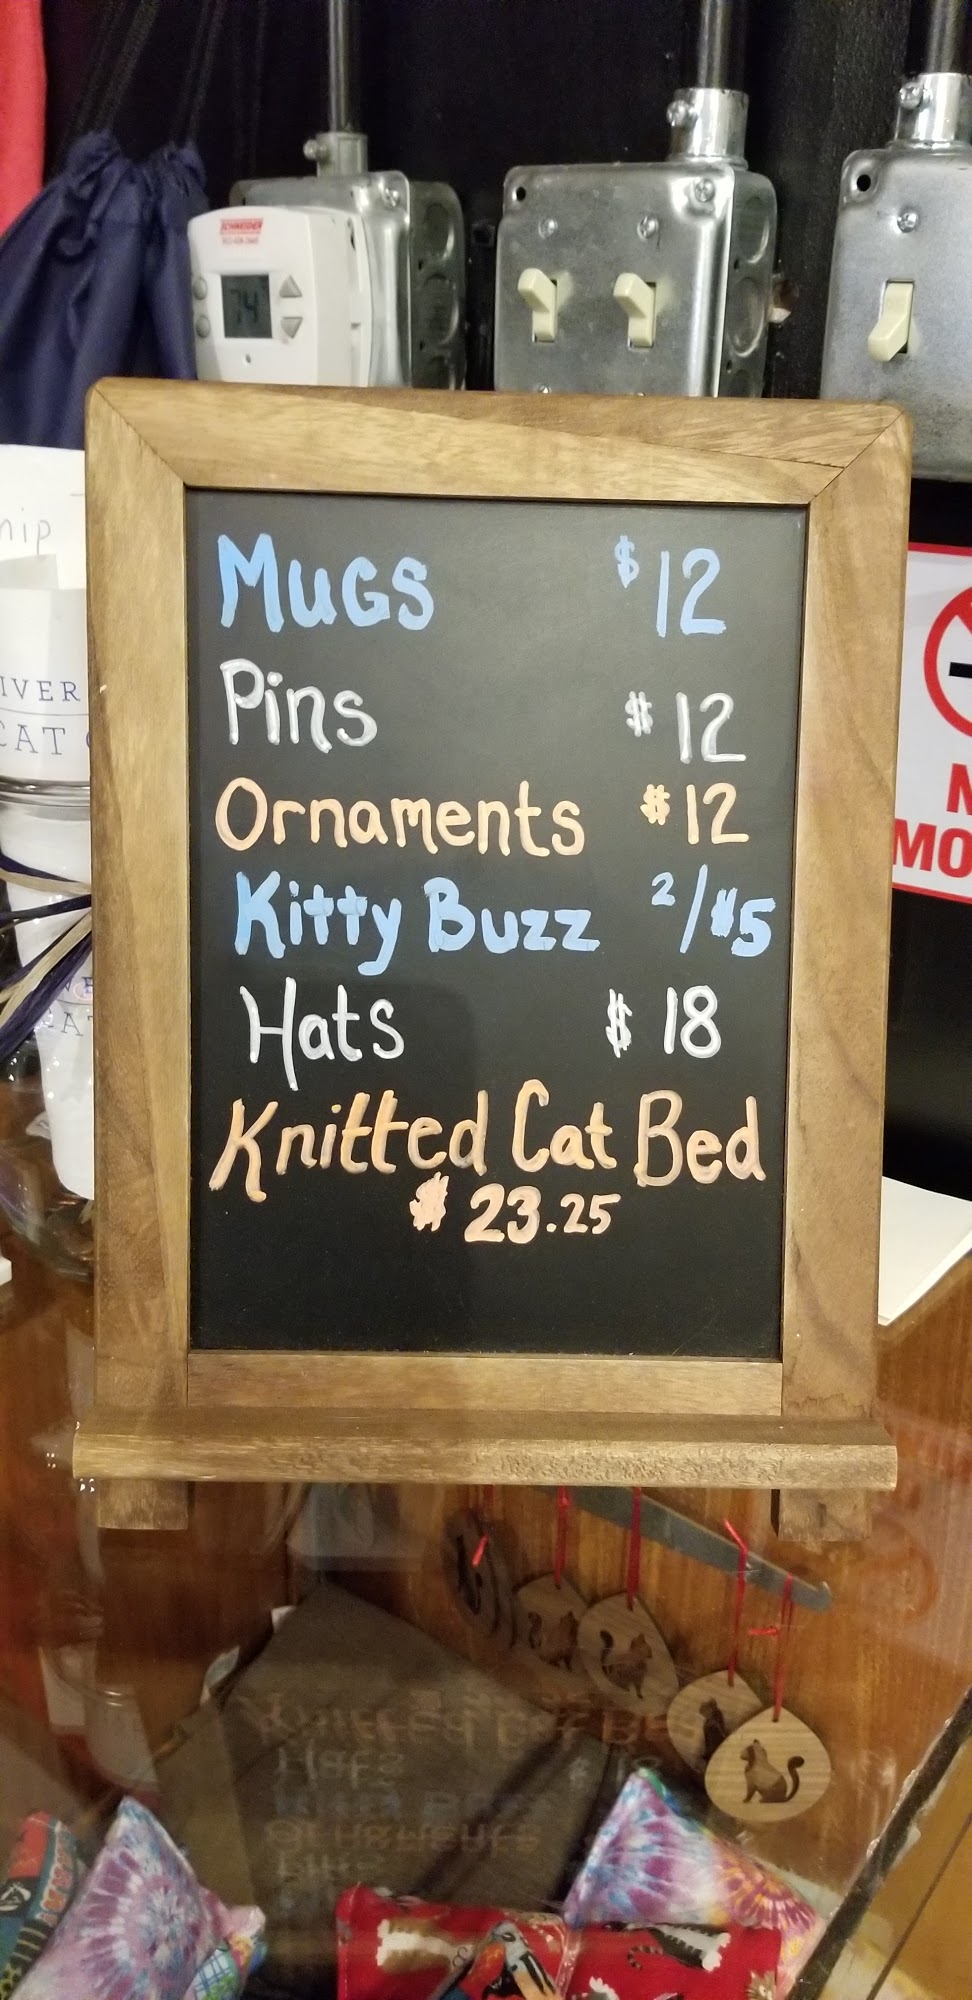 SCHNEIDER
74°
Mugs $12
Pins $12
Ornaments $12
Kitty Buzz 2/$5
Hats $18
Knitted Cat Bed
$23.25
CAT